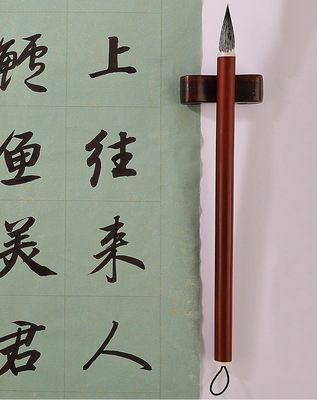 上往来人
鲈鱼美君